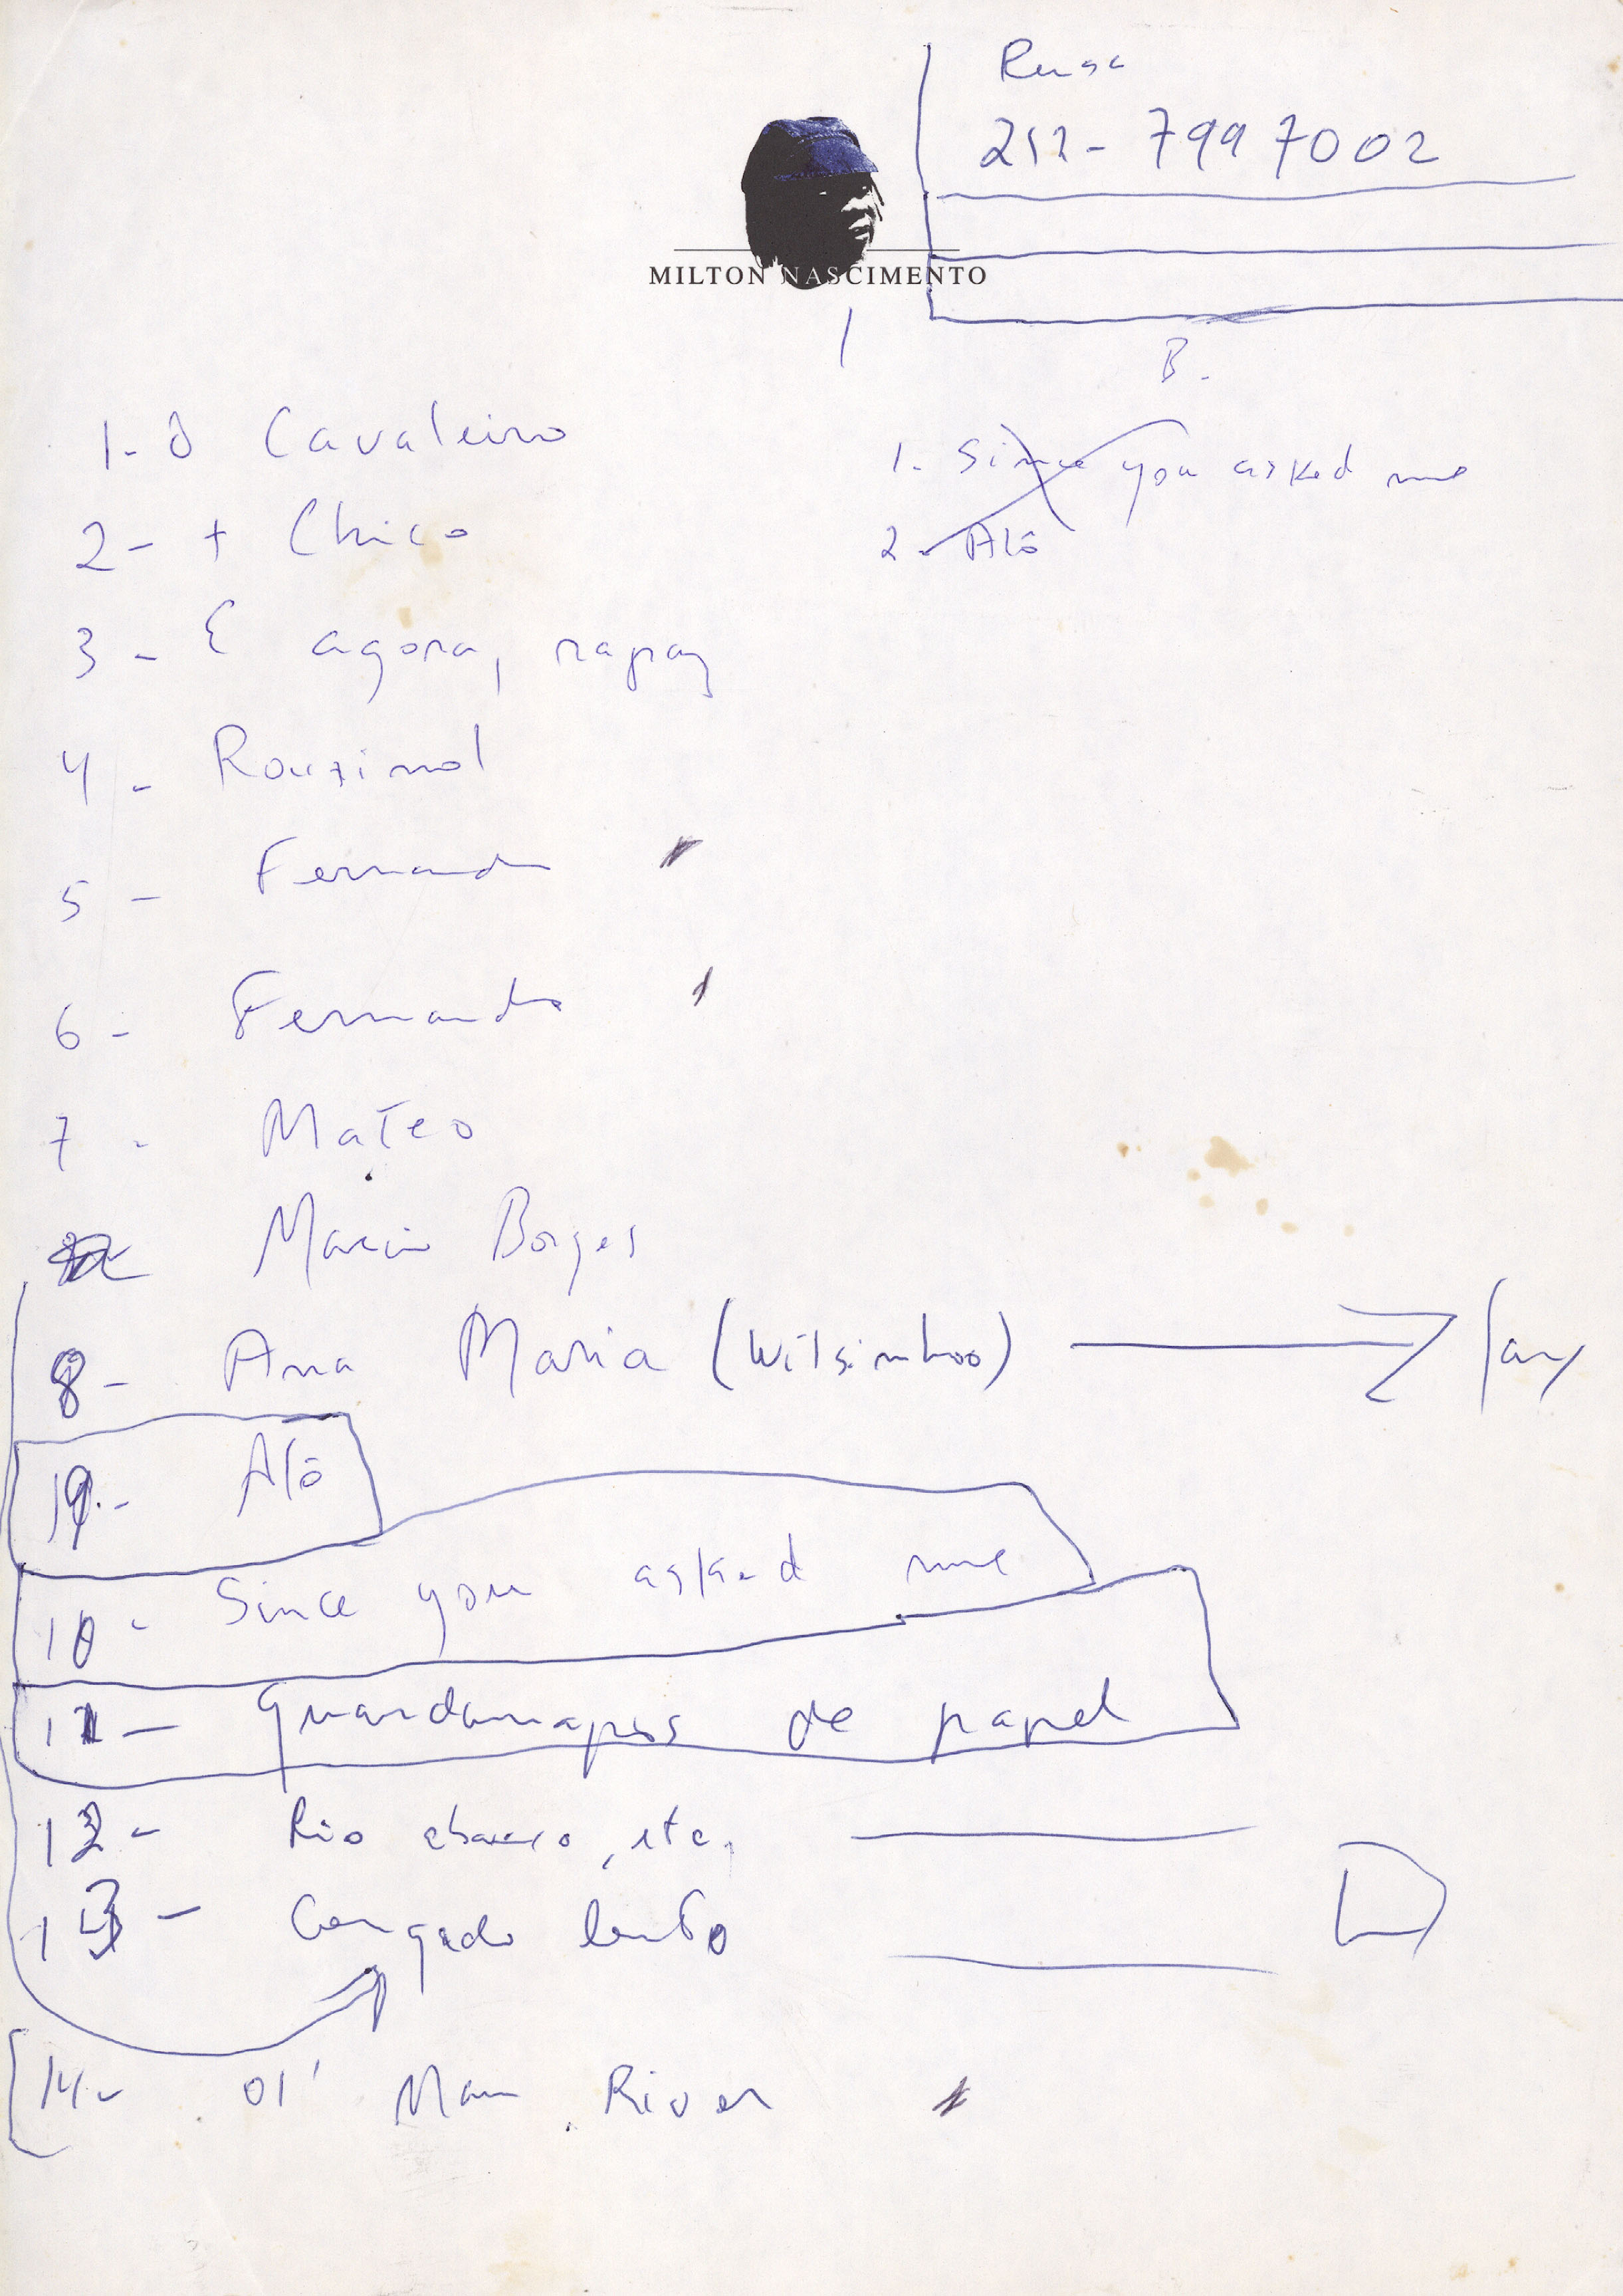 212-799 7002
MILTON NASCIMENTO
B.
1- O Cavaleiro
2- + Chico
3- E agora, rapaz
4- Rouxinol
5- Fernando
6- Fernando
7- Mateo
Marcio Borges
8- Ana Maria (Wilsinhoo)
19- Alô
10- Since you asked me
11- Guardanapos de papel
12- Rio abaixo, etc,
13- Congado lento
14- Ol' Man River
1. Since you asked me
2. Alô